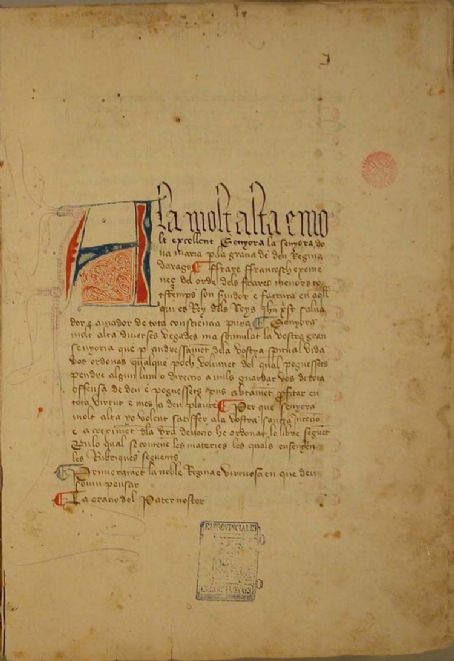 A la molt alta e mo
lt excellent Senyora la senyora do
na maria p la gracia de deu Regina
darago ffrare ffrancesch exime
neç del orde dels frares menors to
stemps son seruidor e factura en aqll
qui es Rey dels Reys Ihu xpst salua
dor e amador de tota consciencia pura Senyora
molt alta diuerses vegades ma stimulat la vostra gran
senyoria que p endressamet dela vostra spirual vida
vos ordonas qualque poch volumet del qual poguessets
pendre algun lum e direccio a mils guardar vos de tota
offensa de deu e poguessets pus abtamet profitar en
tota virtut e mes a deu plaure Per que senyora
molt alta yo volent satisfer ala vostra sancta intecio
e a creximet dla vra deuocio he ordonat lo libre seguet
En lo qual se contenen les materies les quals ensenyen
les Rubriques seguents
Primerament la noble Regina e virtuosa en que deu
souin pensar
La oracio del Pater noster